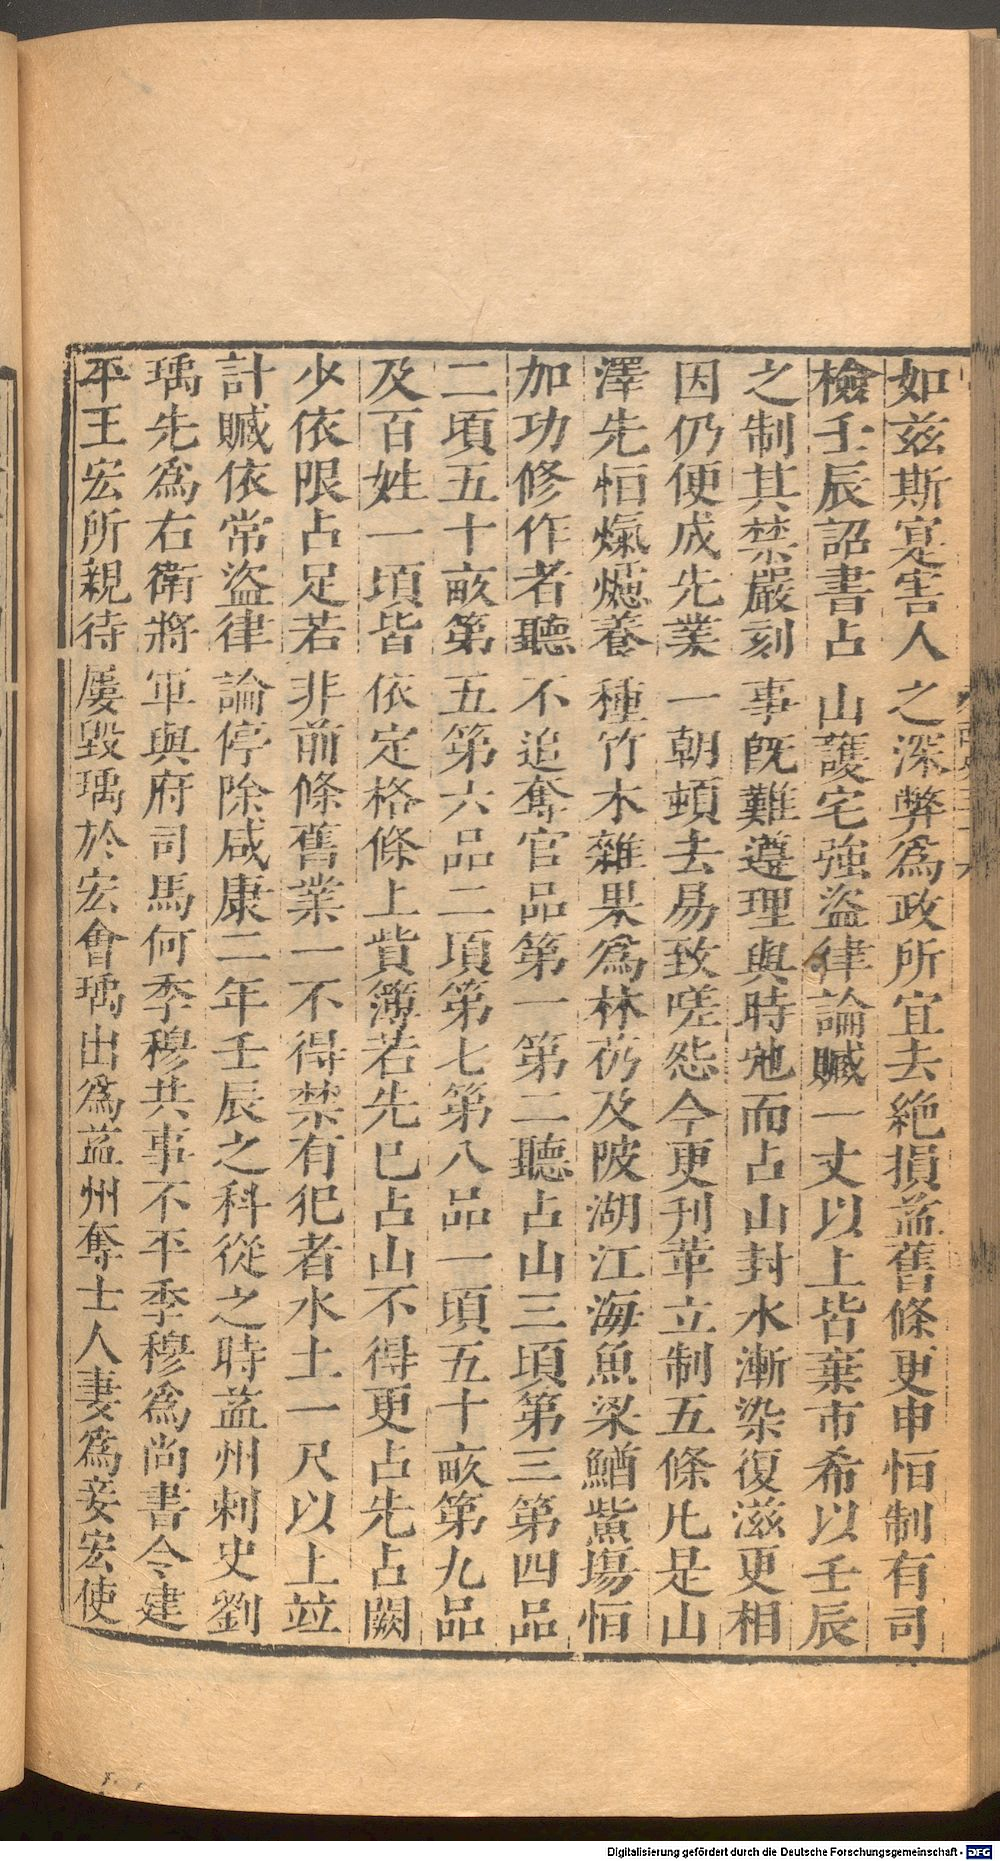 如兹斯寔害人之深弊爲政所宜去絶損益舊條更申恒制有司
檢壬辰詔書占山護宅強盜律論贓一丈以上皆棄市希以壬辰
之制其禁嚴刻事旣難遵理與時弛而占山封水漸染復滋更相
因仍便成先業一朝頓去易致嗟怨今更刋革立制五條凡是山
澤先恒爈爐養種竹木雜果爲林芿及陂湖江海魚梁鰌鮆塲恒
加功修作者聽不追奪官品第一第二聽占山三頃第三第四品
二頃五十畝第五第六品二頃第七第八品一頃五十畝第九品
及百姓一頃皆依定格條上貲簿若先已占山不得更占先占闕
少依限占足若非前條舊業一不得禁有犯者水土一尺以上竝
計贓依常盜律論停除咸康二年壬辰之科從之時益州刺史劉
瑀先爲右衛將軍與府司馬何季穆共事不平季穆爲尚書令建
平王宏所親待屢毀瑀於宏會瑀出爲益州奪士人妻爲妾宏使
Digitalisierung gefördert durch die Deutsche Forschungsgemeinschaft - DFG